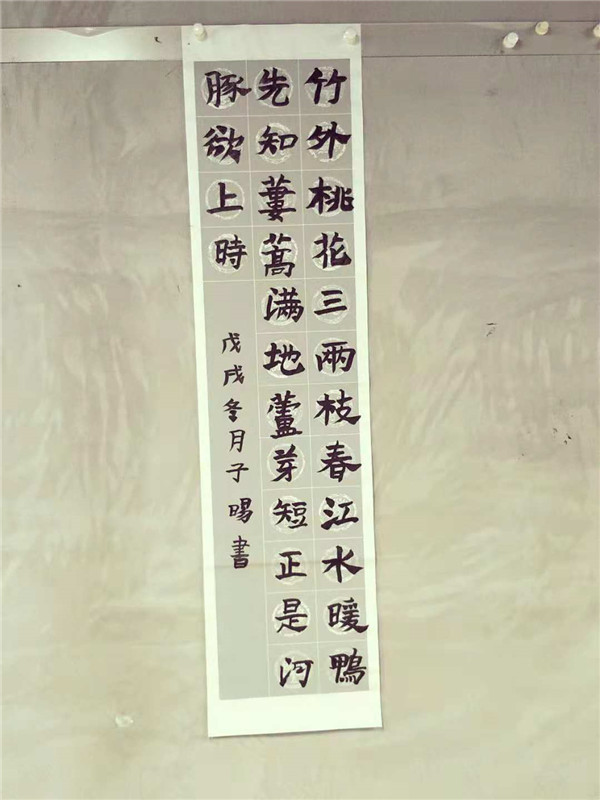 竹外桃花三兩枝春江水暖鴨
先知蔞蒿滿地蘆芽短正是河
豚欲上時
戊戌冬月子暘書